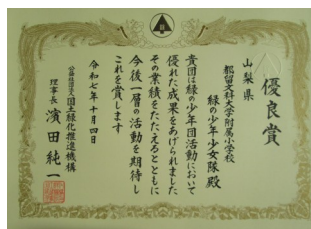 優良賞
山梨県
都留文科大学附属小学校
緑の少年少女隊殿
貴団は緑の少年団活動において
優れた成果をあげられました
その業績をたたえるとともに
今後一層の活動を期待し
これを賞します
令和七年十月四日
公益社団法人国土緑化推進機構
理事長 濱田純一